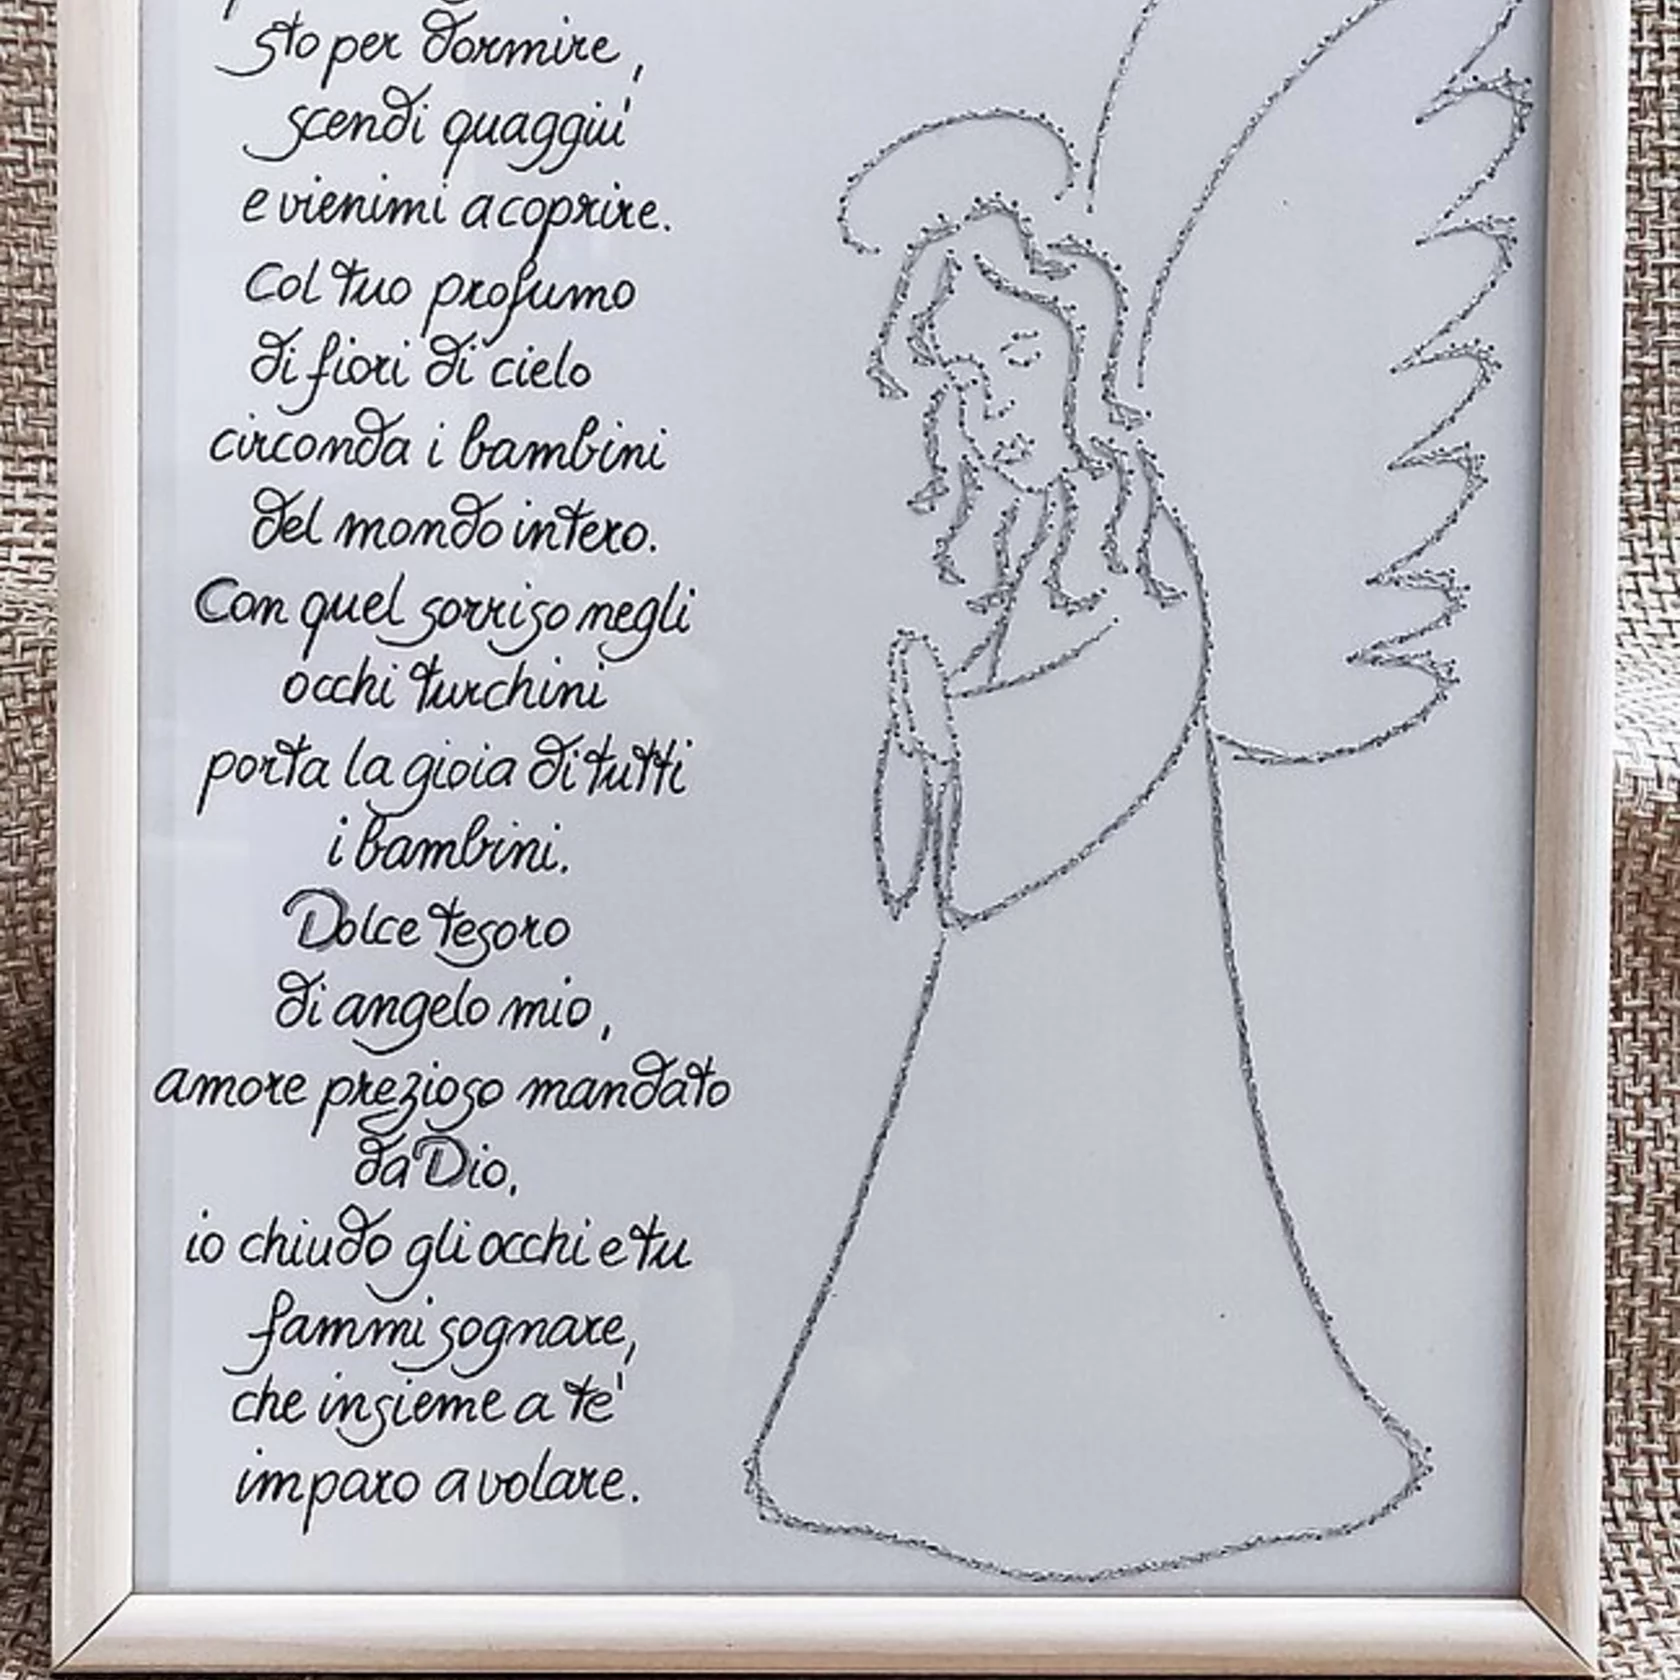 sto per dormire,
scendi quaggiu'
e vienimi a coprire.
Col tuo profumo
di fiori di cielo
circonda i bambini
del mondo intero.
Con quel sorriso negli
occhi turchini
porta la gioia di tutti
i bambini.
Dolce tesoro
di angelo mio,
amore prezioso mandato
da Dio,
io chiudo gli occhi e tu
fammi sognare,
che insieme a te'
imparo a volare.